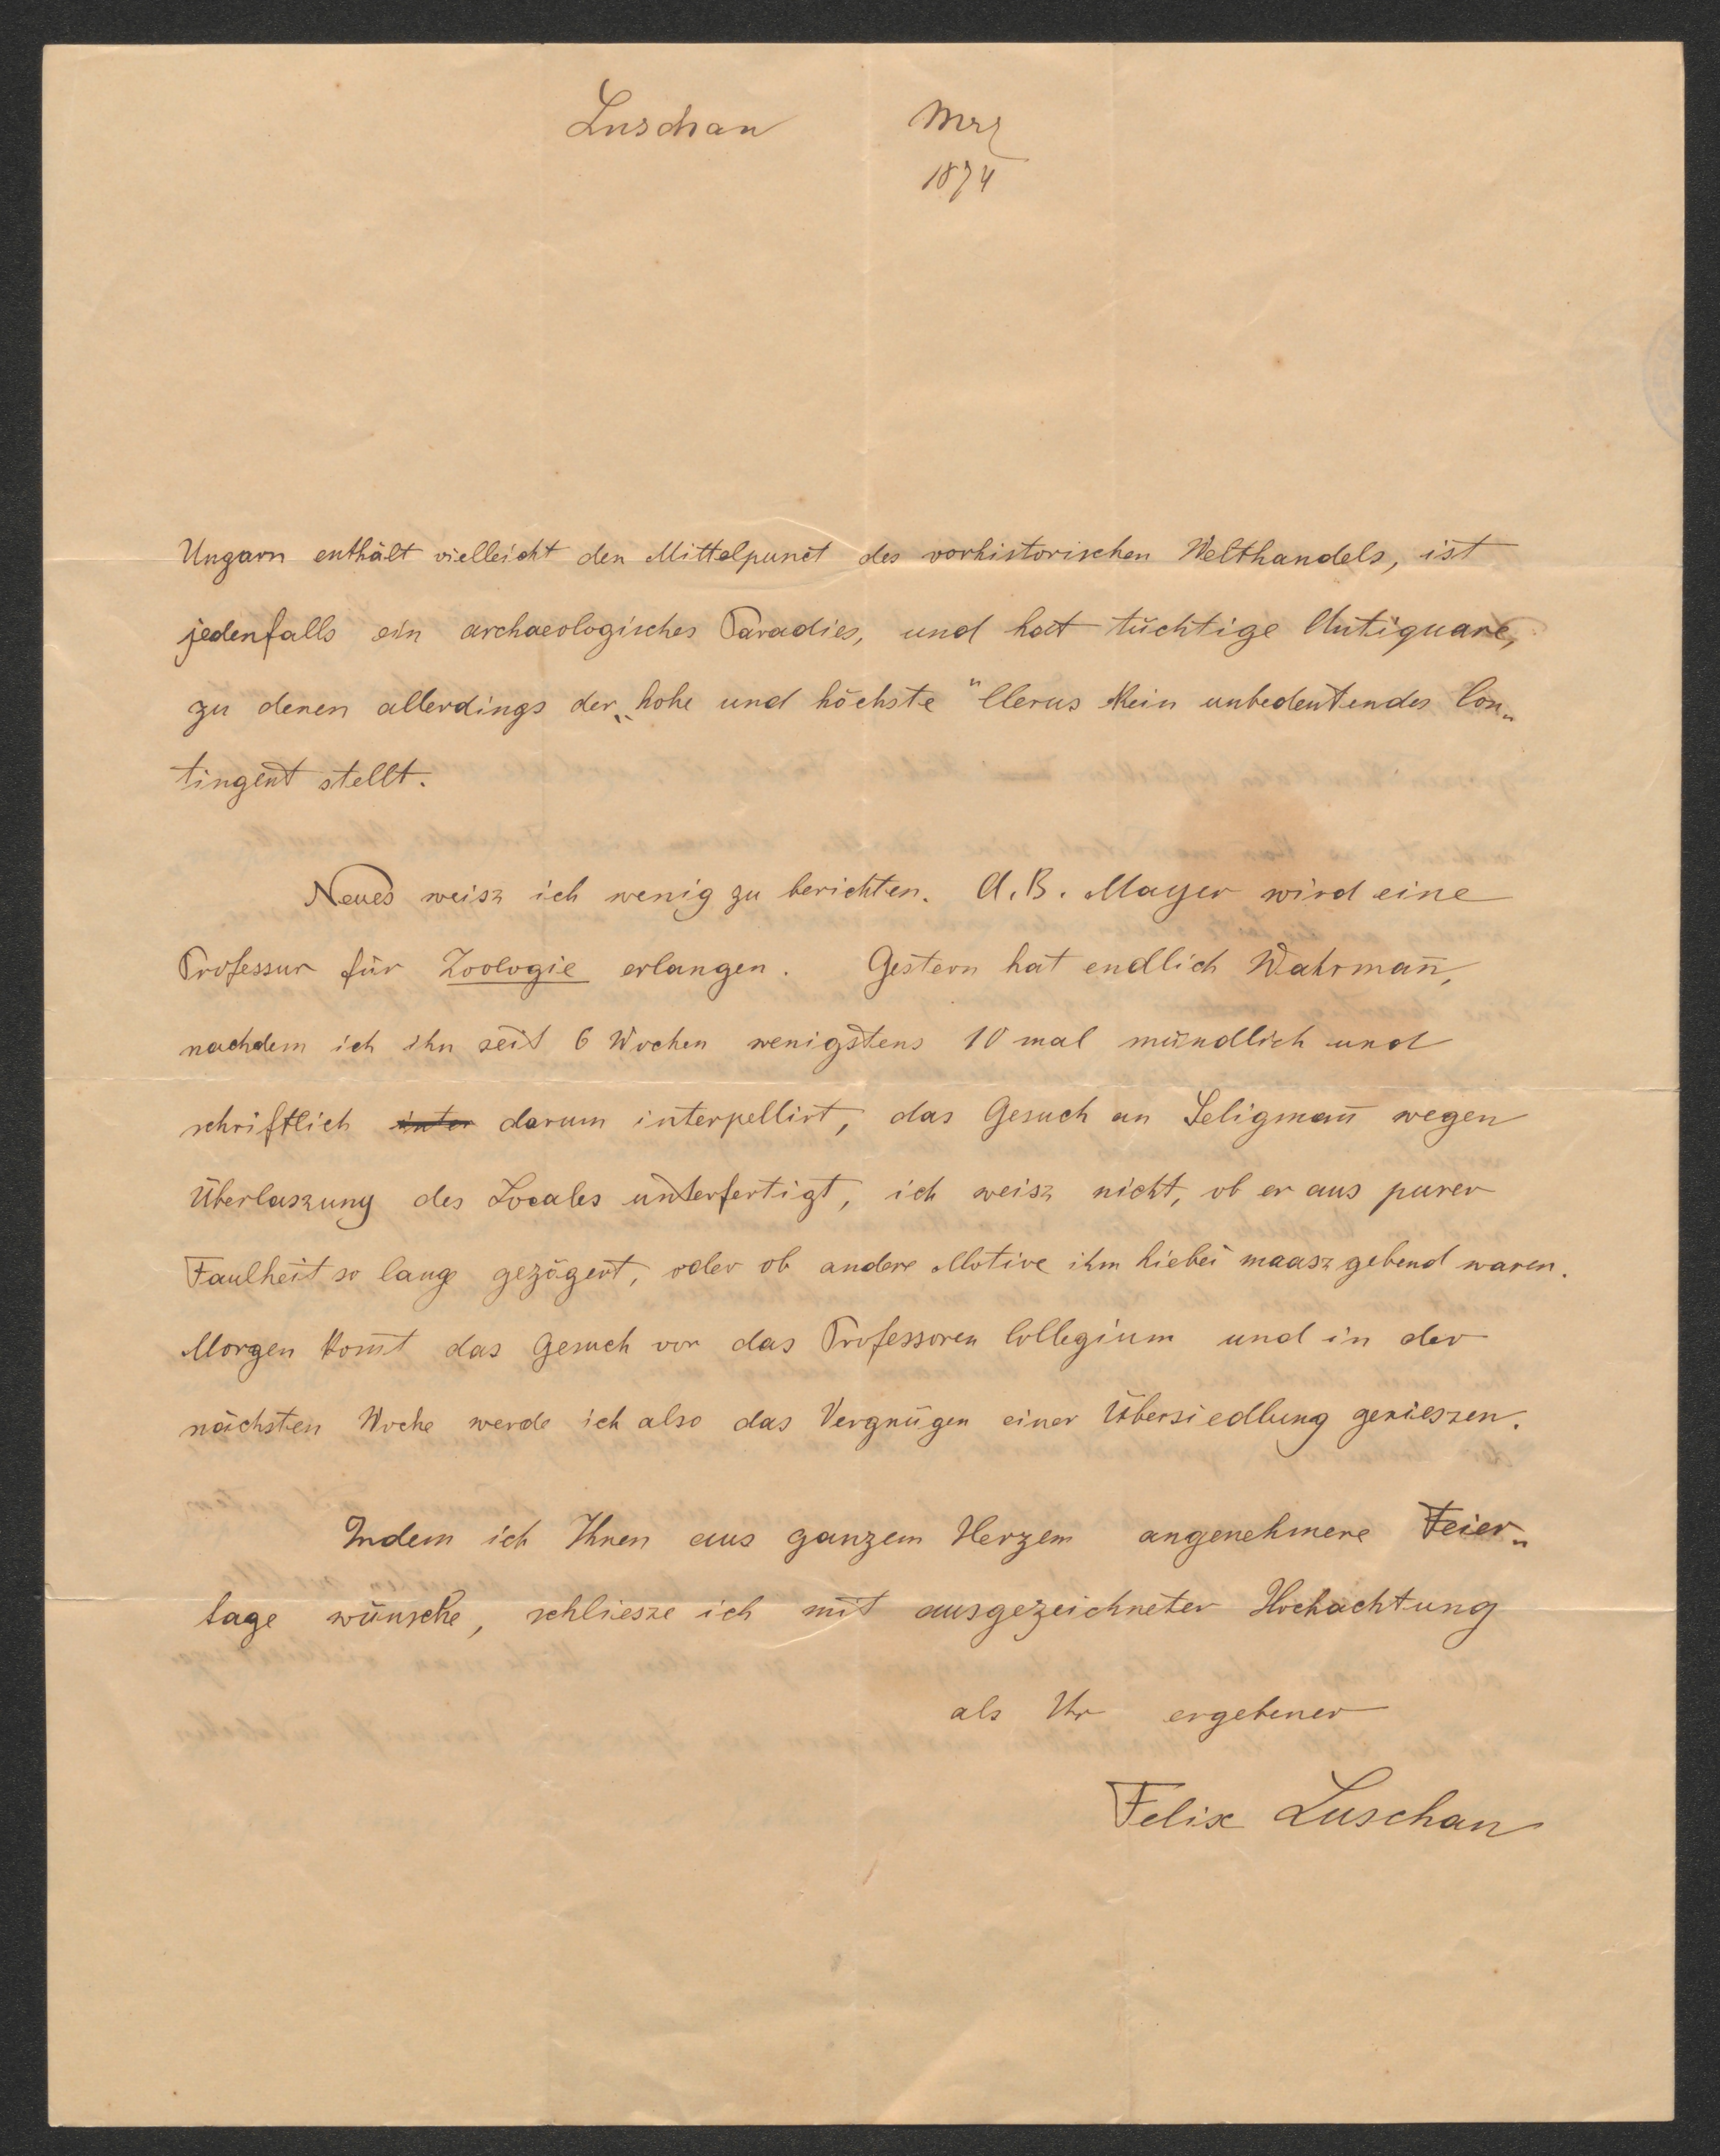 Luschan Mrz
1874
Ungarn enthält vielleicht den Mittelpunct des vorhistorischen Welthandels, ist
jedenfalls ein archaeologisches Paradies, und hat tüchtige Antiquare,
zu denen allerdings der „hohe und höchste“ Clerus kein unbedeutendes Con„
tingent stellt.
Neues weisz ich wenig zu berichten. A. B. Mayer wird eine
Professur für Zoologie erlangen. Gestern hat endlich Wahrman̄,
nachdem ich ihn seit 6 Wochen wenigstens 10 mal mündlich und
schriftlich inter darum interpellirt, das Gesuch an Seligman̄ wegen
Überlaszung des Locales unterfertigt, ich weisz nicht, ob er aus purer
Faulheit so lange gezögert, oder ob andere Motive ihm hiebei maaszgebend waren.
Morgen kom̄t das Gesuch vor das Professoren Collegium und in der
nächsten Woche werde ich also das Vergnügen einer Übersiedlung genieszen.
Indem ich Ihnen aus ganzem Herzem angenehmere Feier„
tage wünsche, schliesze ich mit ausgezeichneter Hochachtung
als Ihr ergebener
Felix Luschan